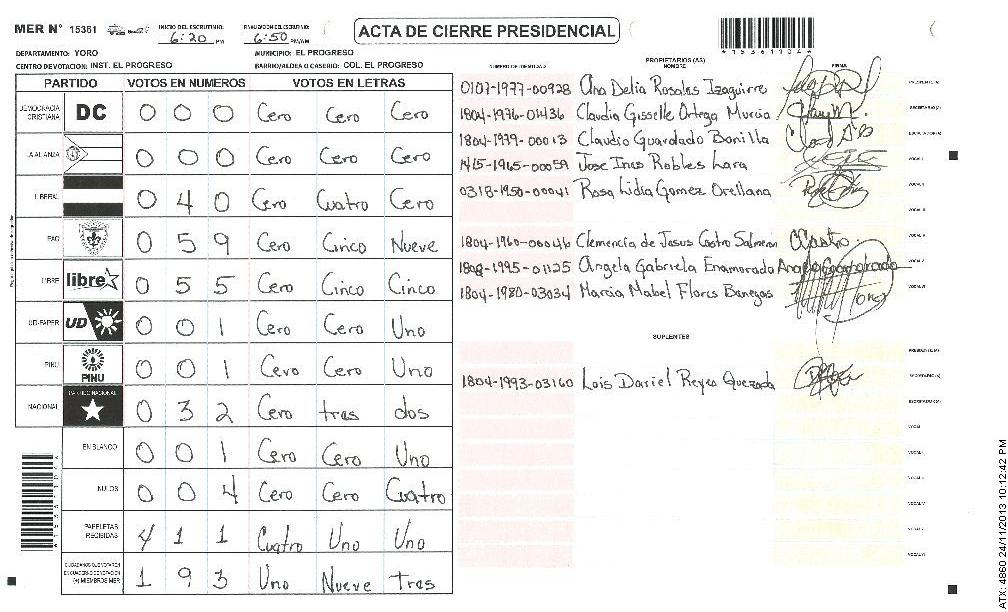 MER N° 15361 INICIO DEL ESCRUTINIO: 6:20 PM FINALIZACION DEL ESCRUTINIO: 6:50 PM/AM ACTA DE CIERRE PRESIDENCIAL
DEPARTAMENTO: YORO MUNICIPIO: EL PROGRESO
CENTRO DE VOTACION: INST. EL PROGRESO BARRIO/ALDEA O CASERIO: COL. EL PROGRESO
PARTIDO VOTOS EN NUMEROS VOTOS EN LETRAS
DEMOCRACIA CRISTIANA DC 0 0 0 Cero Cero Cero
LA ALIANZA 0 0 0 Cero Cero Cero
LIBERAL 0 4 0 Cero Cuatro Cero
PAC 0 5 9 Cero Cinco Nueve
LIBRE libre 0 5 5 Cero Cinco Cinco
UD-FAPER UD 0 0 1 Cero Cero Uno
PINU PINU 0 0 1 Cero Cero Uno
NACIONAL PARTIDO NACIONAL 0 3 2 Cero tres dos
EN BLANCO 0 0 1 Cero Cero Uno
NULOS 0 0 4 Cero Cero Cuatro
PAPELETAS RECIBIDAS 4 1 1 Cuatro Uno Uno
(+) MIEMBROS MER 1 9 3 Uno Nueve Tres
NUMERO DE IDENTIDAD PROPIETARIOS (AS) NOMBRE FIRMA
0107-1977-00928 Ana Delia Rosales Izaguirre PRESIDENTE(A)
1804-1976-01436 Claudia Gisselle Ortega Murcia SECRETARIO(A)
1804-1979-00013 Claudio Guardado Bonilla ESCRUTADOR(A)
1415-1965-00059 Jose Ines Robles Lara VOCAL I
0318-1950-00041 Rosa Lidia Gomez Orellana VOCAL II
VOCAL III
1804-1960-00046 Clemencia de Jesus Castro Salmeron CCastro VOCAL IV
1808-1995-01125 Angela Gabriela Enamorado VOCAL V
1804-1980-03034 Marcia Mabel Flores Banegas VOCAL VI
SUPLENTES
PRESIDENTE(A)
1804-1993-03160 Lois Dariel Reyes Quezada SECRETARIO(A)
ESCRUTADOR(A)
VOCAL I
VOCAL II
VOCAL III
VOCAL IV
VOCAL V
VOCAL VI
*15361104*
ATX: 4860 24/11/2013 10:12:42 PM